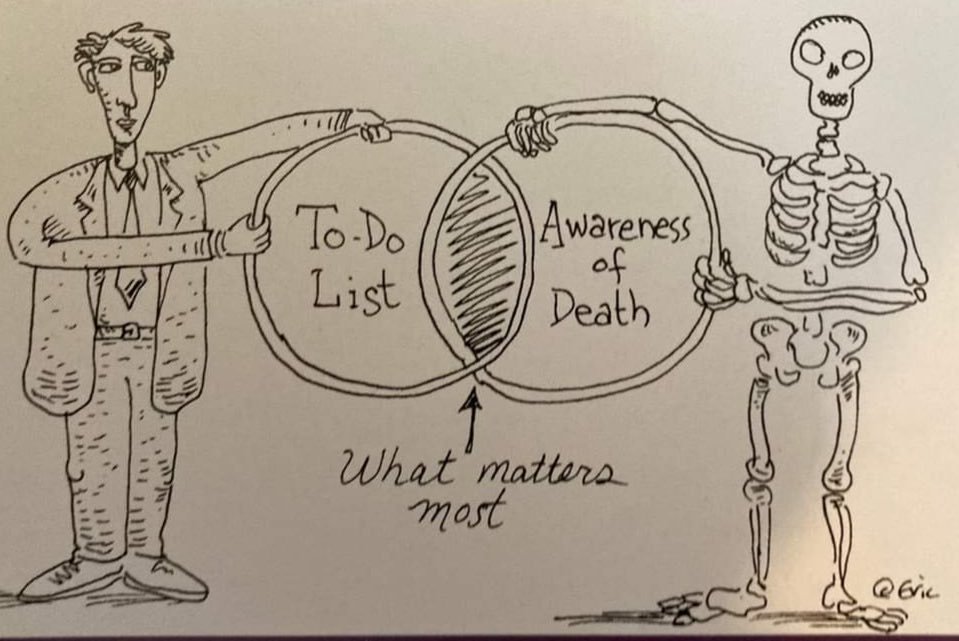 To-Do
List
Awareness
of
Death
What matters
most
@Eric